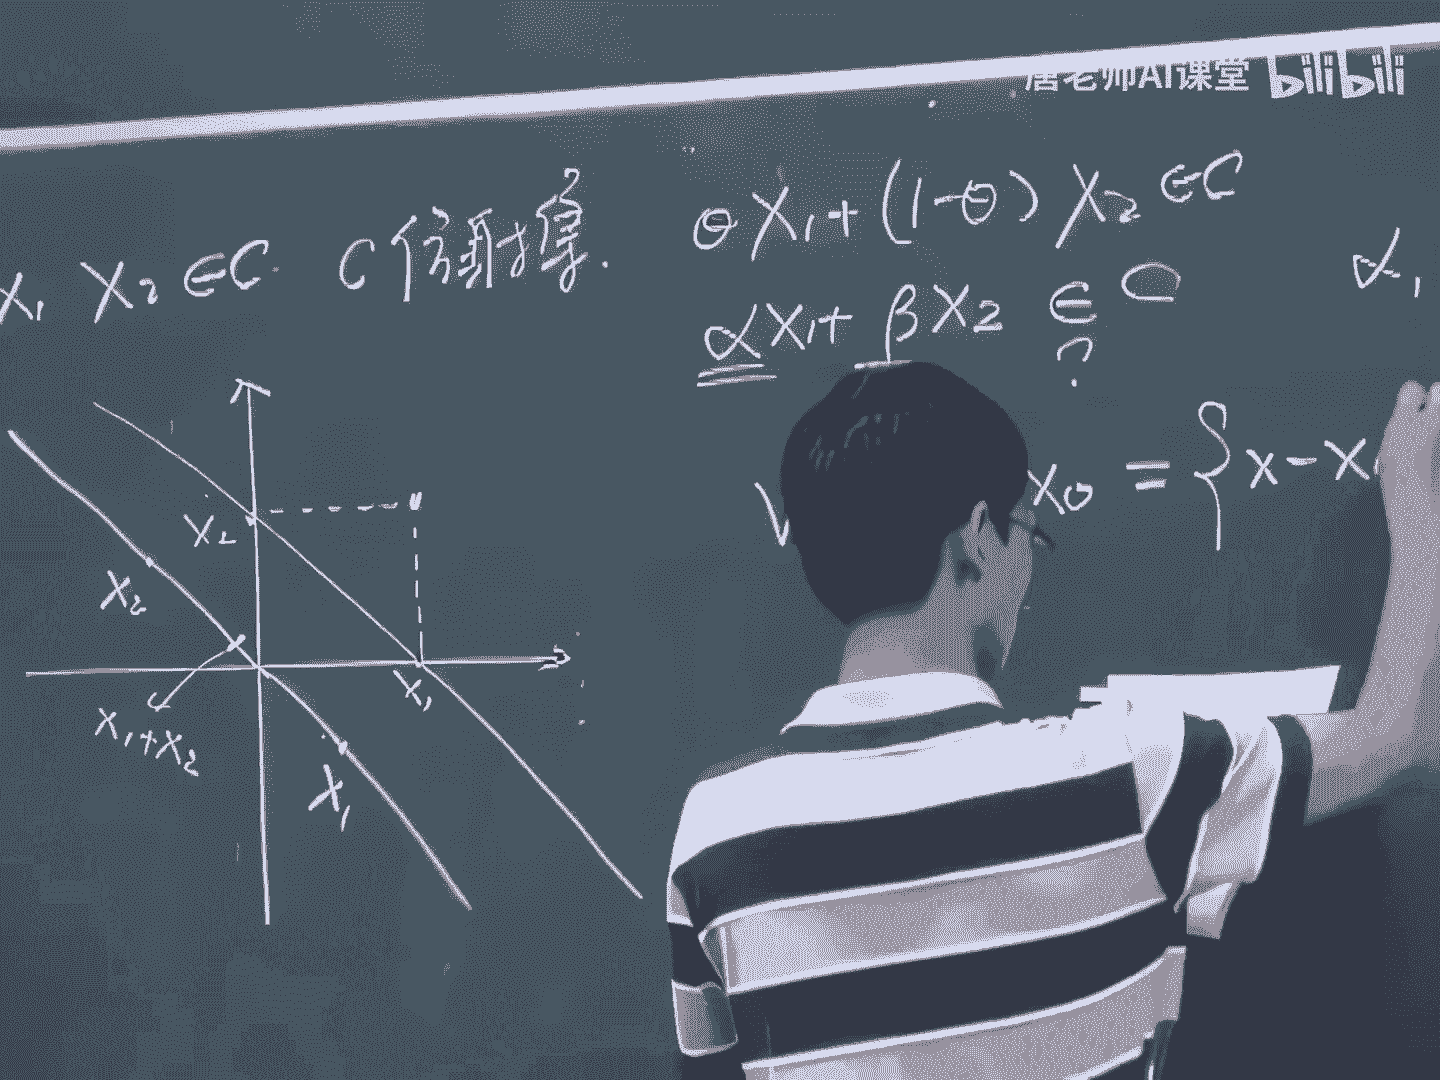 唐老师AI课堂 bilibili
X₁ X₂ ∈ C. C 仿射集.
θX₁ + (1-θ) X₂ ∈ C
αX₁ + βX₂ ∈ C
?
α₁
V
x₀ = { x - x
X₂
X₂
X₁
X₁+X₂
X₁